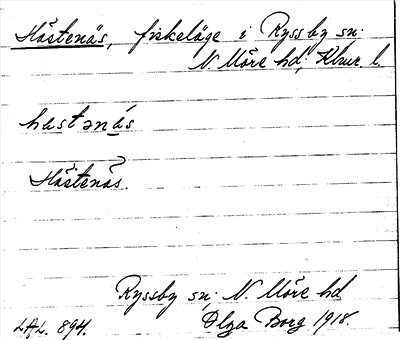 Hästenäs, fiskeläge i Ryssby sn;
N. Möre hd, Klmr l.
hastənás
Hästenäs.
Ryssby sn; N. Möre hd
LAL. 894. Olga Borg 1918.